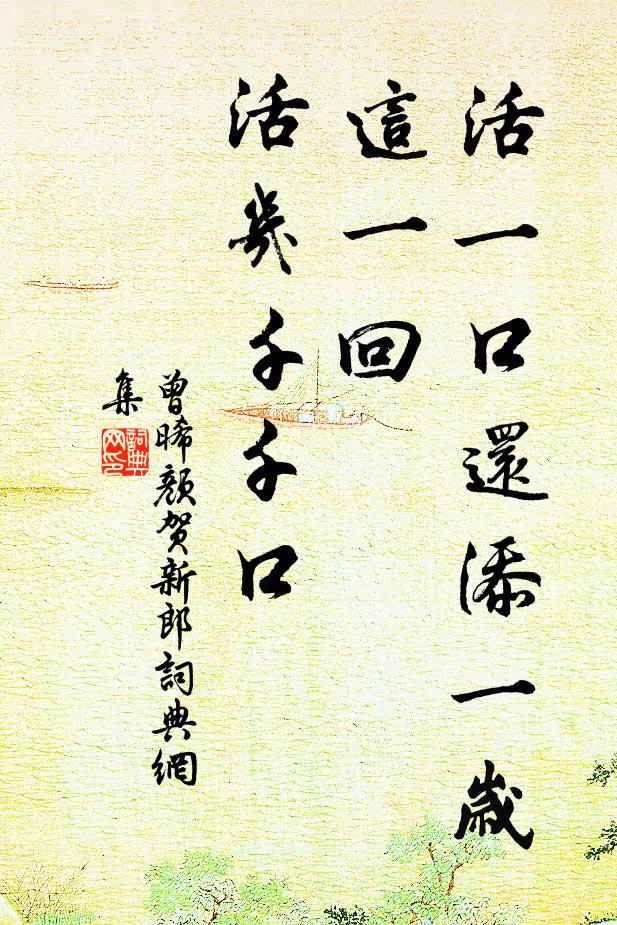 活一口還添一歲
這一回
活幾千千口
曾晞顏賀新郎詞典網
集
詞典
网印